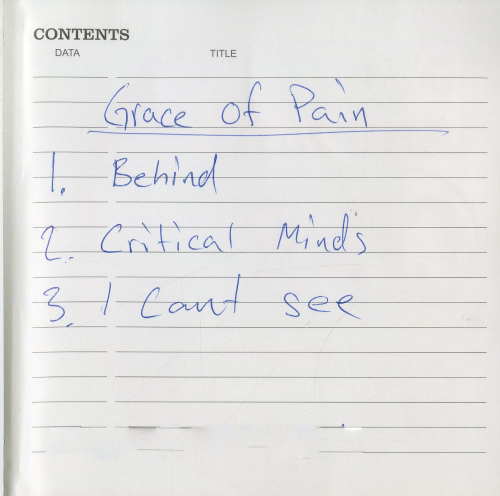 CONTENTS
DATA TITLE
Grace of Pain
1. Behind
2. Critical Minds
3. I cant see